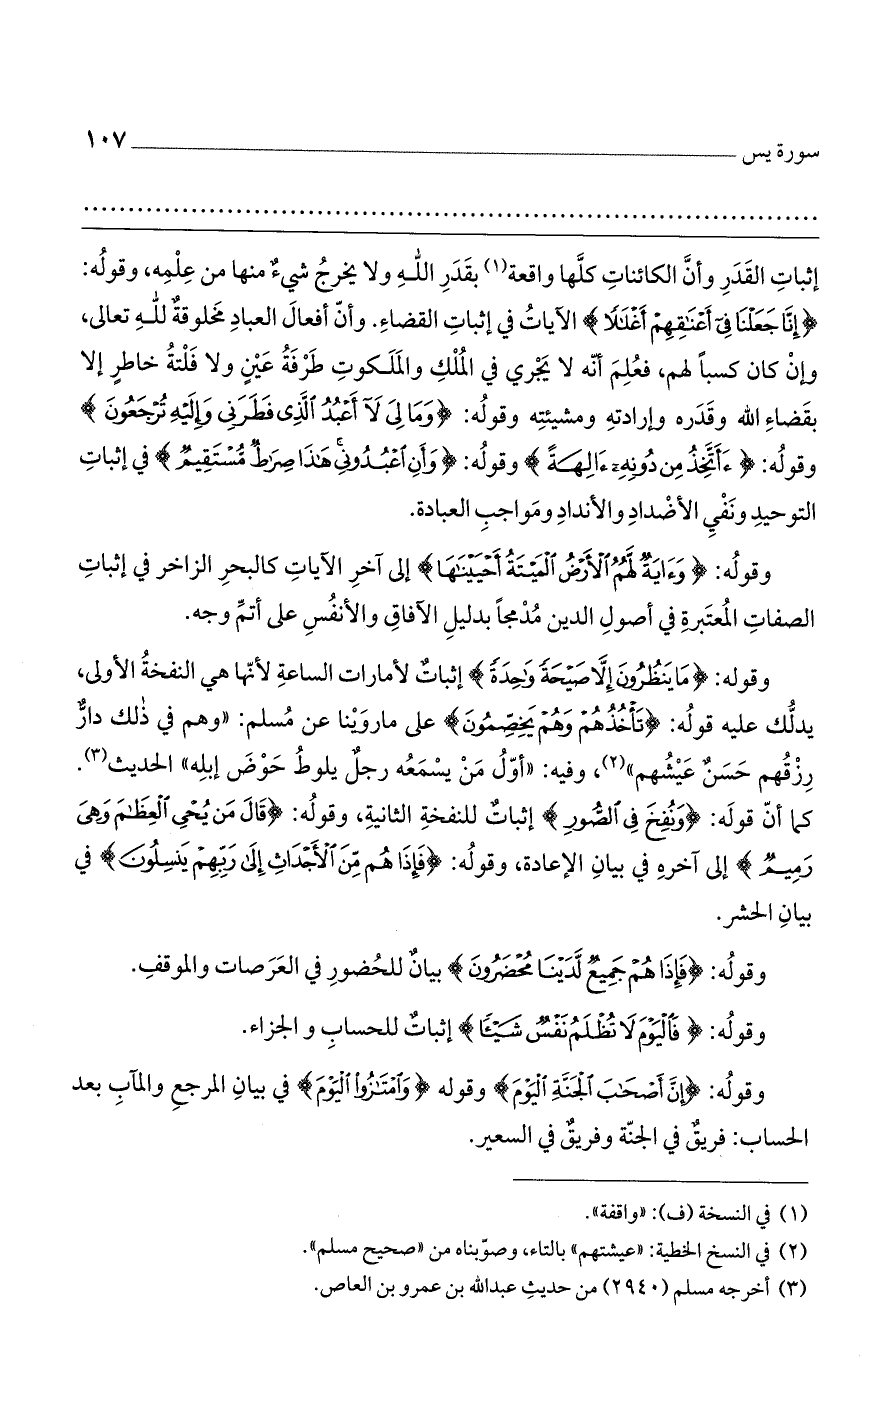 سورة يس ١٠٧
إثباتِ القَدَرِ وأنَّ الكائناتِ كلَّها واقعة(١) بقَدَرِ اللهِ ولا يخرجُ شيءٌ منها من عِلْمِه، وقولُه:
﴿إِنَّا جَعَلْنَا فِىٓ أَعْنَـٰقِهِمْ أَغْلَـٰلًا﴾ الآياتُ في إثباتِ القضاءِ. وأنّ أفعالَ العبادِ مَخلوقةٌ للهِ تعالى،
وإنْ كان كسباً لهم، فعُلِمَ أنّه لا يَجْري في المُلْكِ والمَلَكوتِ طَرْفَةُ عَيْنٍ ولا فَلْتةُ خاطرٍ إلا
بقضاءِ الله وقَدَره وإرادتهِ ومشيئتِه وقولُه: ﴿وَمَا لِىَ لَآ أَعْبُدُ ٱلَّذِى فَطَرَنِى وَإِلَيْهِ تُرْجَعُونَ﴾
وقولُه: ﴿ءَأَتَّخِذُ مِن دُونِهِۦٓ ءَالِهَةً﴾ وقولُه: ﴿وَأَنِ ٱعْبُدُونِى ۚ هَـٰذَا صِرَٰطٌ مُّسْتَقِيمٌ﴾ في إثباتِ
التوحيدِ ونَفْيِ الأضْدادِ والأندادِ ومَواجبِ العبادة.
وقولُه: ﴿وَءَايَةٌ لَّهُمُ ٱلْأَرْضُ ٱلْمَيْتَةُ أَحْيَيْنَـٰهَا﴾ إلى آخرِ الآياتِ كالبحرِ الزاخرِ في إثباتِ
الصفاتِ المُعتَبرةِ في أصولِ الدين مُدْمجاً بدليلِ الآفاقِ والأنفُسِ على أتمِّ وجه.
وقوله: ﴿مَا يَنظُرُونَ إِلَّا صَيْحَةً وَٰحِدَةً﴾ إثباتٌ لأمارات الساعةِ لأنّها هي النفخةُ الأولى،
يدلُّك عليه قولُه: ﴿تَأْخُذُهُمْ وَهُمْ يَخِصِّمُونَ﴾ على ماروَيْنا عن مُسلم: «وهم في ذٰلك دارٌّ
رِزْقُهم حَسَنٌ عَيْشُهم»(٢)، وفيه: «أوّلُ مَنْ يسْمَعُه رجلٌ يلوطُ حَوْضَ إبلِه» الحديث(٣).
كما أنّ قولَه: ﴿وَنُفِخَ فِى ٱلصُّورِ﴾ إثباتٌ للنفخةِ الثانيةِ، وقولُه: ﴿قَالَ مَن يُحْىِ ٱلْعِظَـٰمَ وَهِىَ
رَمِيمٌ﴾ إلى آخرهِ في بيانِ الإعادة، وقولُه: ﴿فَإِذَا هُم مِّنَ ٱلْأَجْدَاثِ إِلَىٰ رَبِّهِمْ يَنسِلُونَ﴾ في
بيانِ الحشر.
وقولُه: ﴿فَإِذَا هُمْ جَمِيعٌ لَّدَيْنَا مُحْضَرُونَ﴾ بيانٌ للحُضورِ في العَرَصات والموقفِ.
وقولُه: ﴿فَٱلْيَوْمَ لَا تُظْلَمُ نَفْسٌ شَيْـًٔا﴾ إثباتٌ للحسابِ و الجزاء.
وقولُه: ﴿إِنَّ أَصْحَـٰبَ ٱلْجَنَّةِ ٱلْيَوْمَ﴾ وقوله ﴿وَٱمْتَـٰزُوا۟ ٱلْيَوْمَ﴾ في بيانِ المرجعِ والمآبِ بعد
الحساب: فريقٌ في الجنّة وفريقٌ في السعير.
(١) في النسخة (ف): «واقفة».
(٢) في النسخ الخطية: «عيشتهم» بالتاء، وصوّبناه من «صحيح مسلم».
(٣) أخرجه مسلم (٢٩٤٠) من حديثِ عبدالله بن عمرو بن العاص.